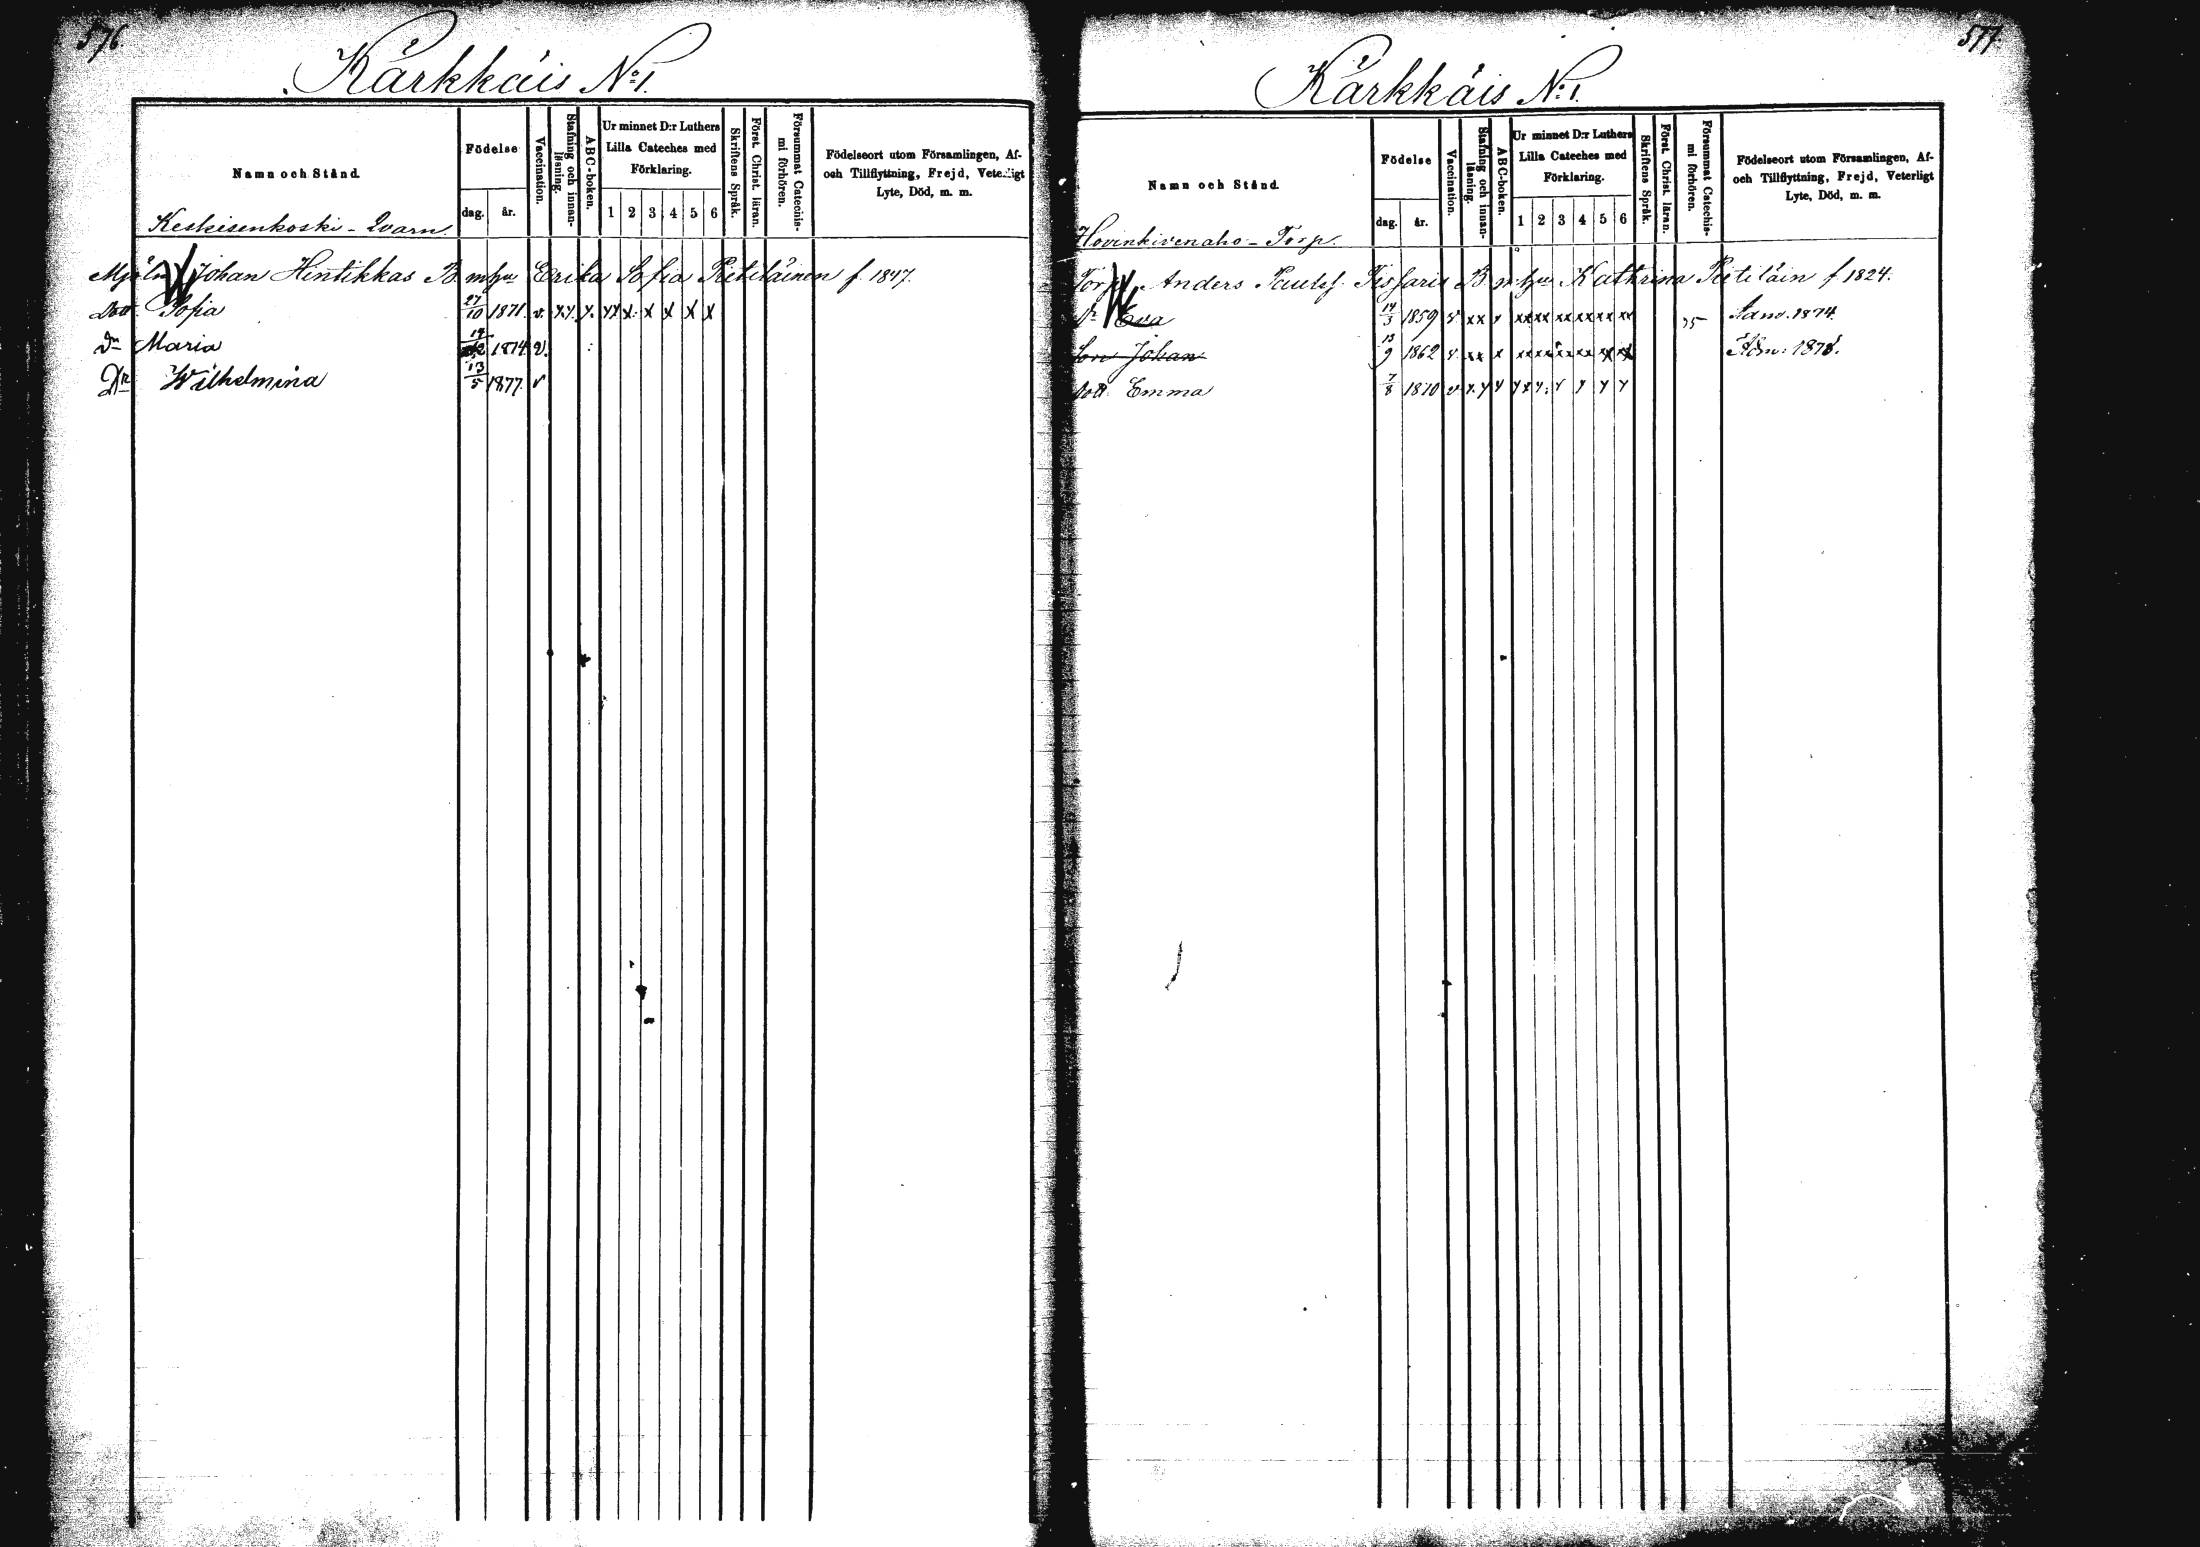 576
Kärkkäis No 1.
Namn och Stånd.
Födelse
dag.
år.
Vaccination.
Stafning och innan-läsning.
ABC-boken.
Ur minnet D:r Luthers
Lilla Cateches med
Förklaring.
1 2 3 4 5 6
Skriftens Språk.
Först. Christ. läran.
Försummat Catechis-
mi förhören.
Födelseort utom Församlingen, Af-
och Tillflyttning, Frejd, Veterligt
Lyte, Död, m. m.
Keskisenkoski - Qvarn.
Mjöln Johan Hintikkas B. m hu Erika Sofia Pietiläinen f. 1847.
Dott Sofia 27/10 1871. v. x.x. x. xx x. x x x x
Dr Maria 1874 v.
Dr Wilhelmina 13/5 1877. v
577.
Kärkkäis No 1.
Namn och Stånd.
Födelse
dag.
år.
Vaccination.
Stafning och innan-läsning.
ABC-boken.
Ur minnet D:r Luthers
Lilla Cateches med
Förklaring.
1 2 3 4 5 6
Skriftens Språk.
Först. Christ. läran.
Försummat Catechis-
mi förhören.
Födelseort utom Församlingen, Af-
och Tillflyttning, Frejd, Veterligt
Lyte, Död, m. m.
Hovinkivenaho - Torp.
Torp Anders Paulss. Tissaris B. m hu Kathrina Pietiläin f 1824.
Dr Eva 14/3 1859 v xx x xx xx xx xx xx xx 75 Adm. 1874.
Son Johan 13/9 1862 v. xx x xx xx xx xx xx xx Adm: 1878.
Dott Emma 7/8 1870 v x x x x x x x x x x